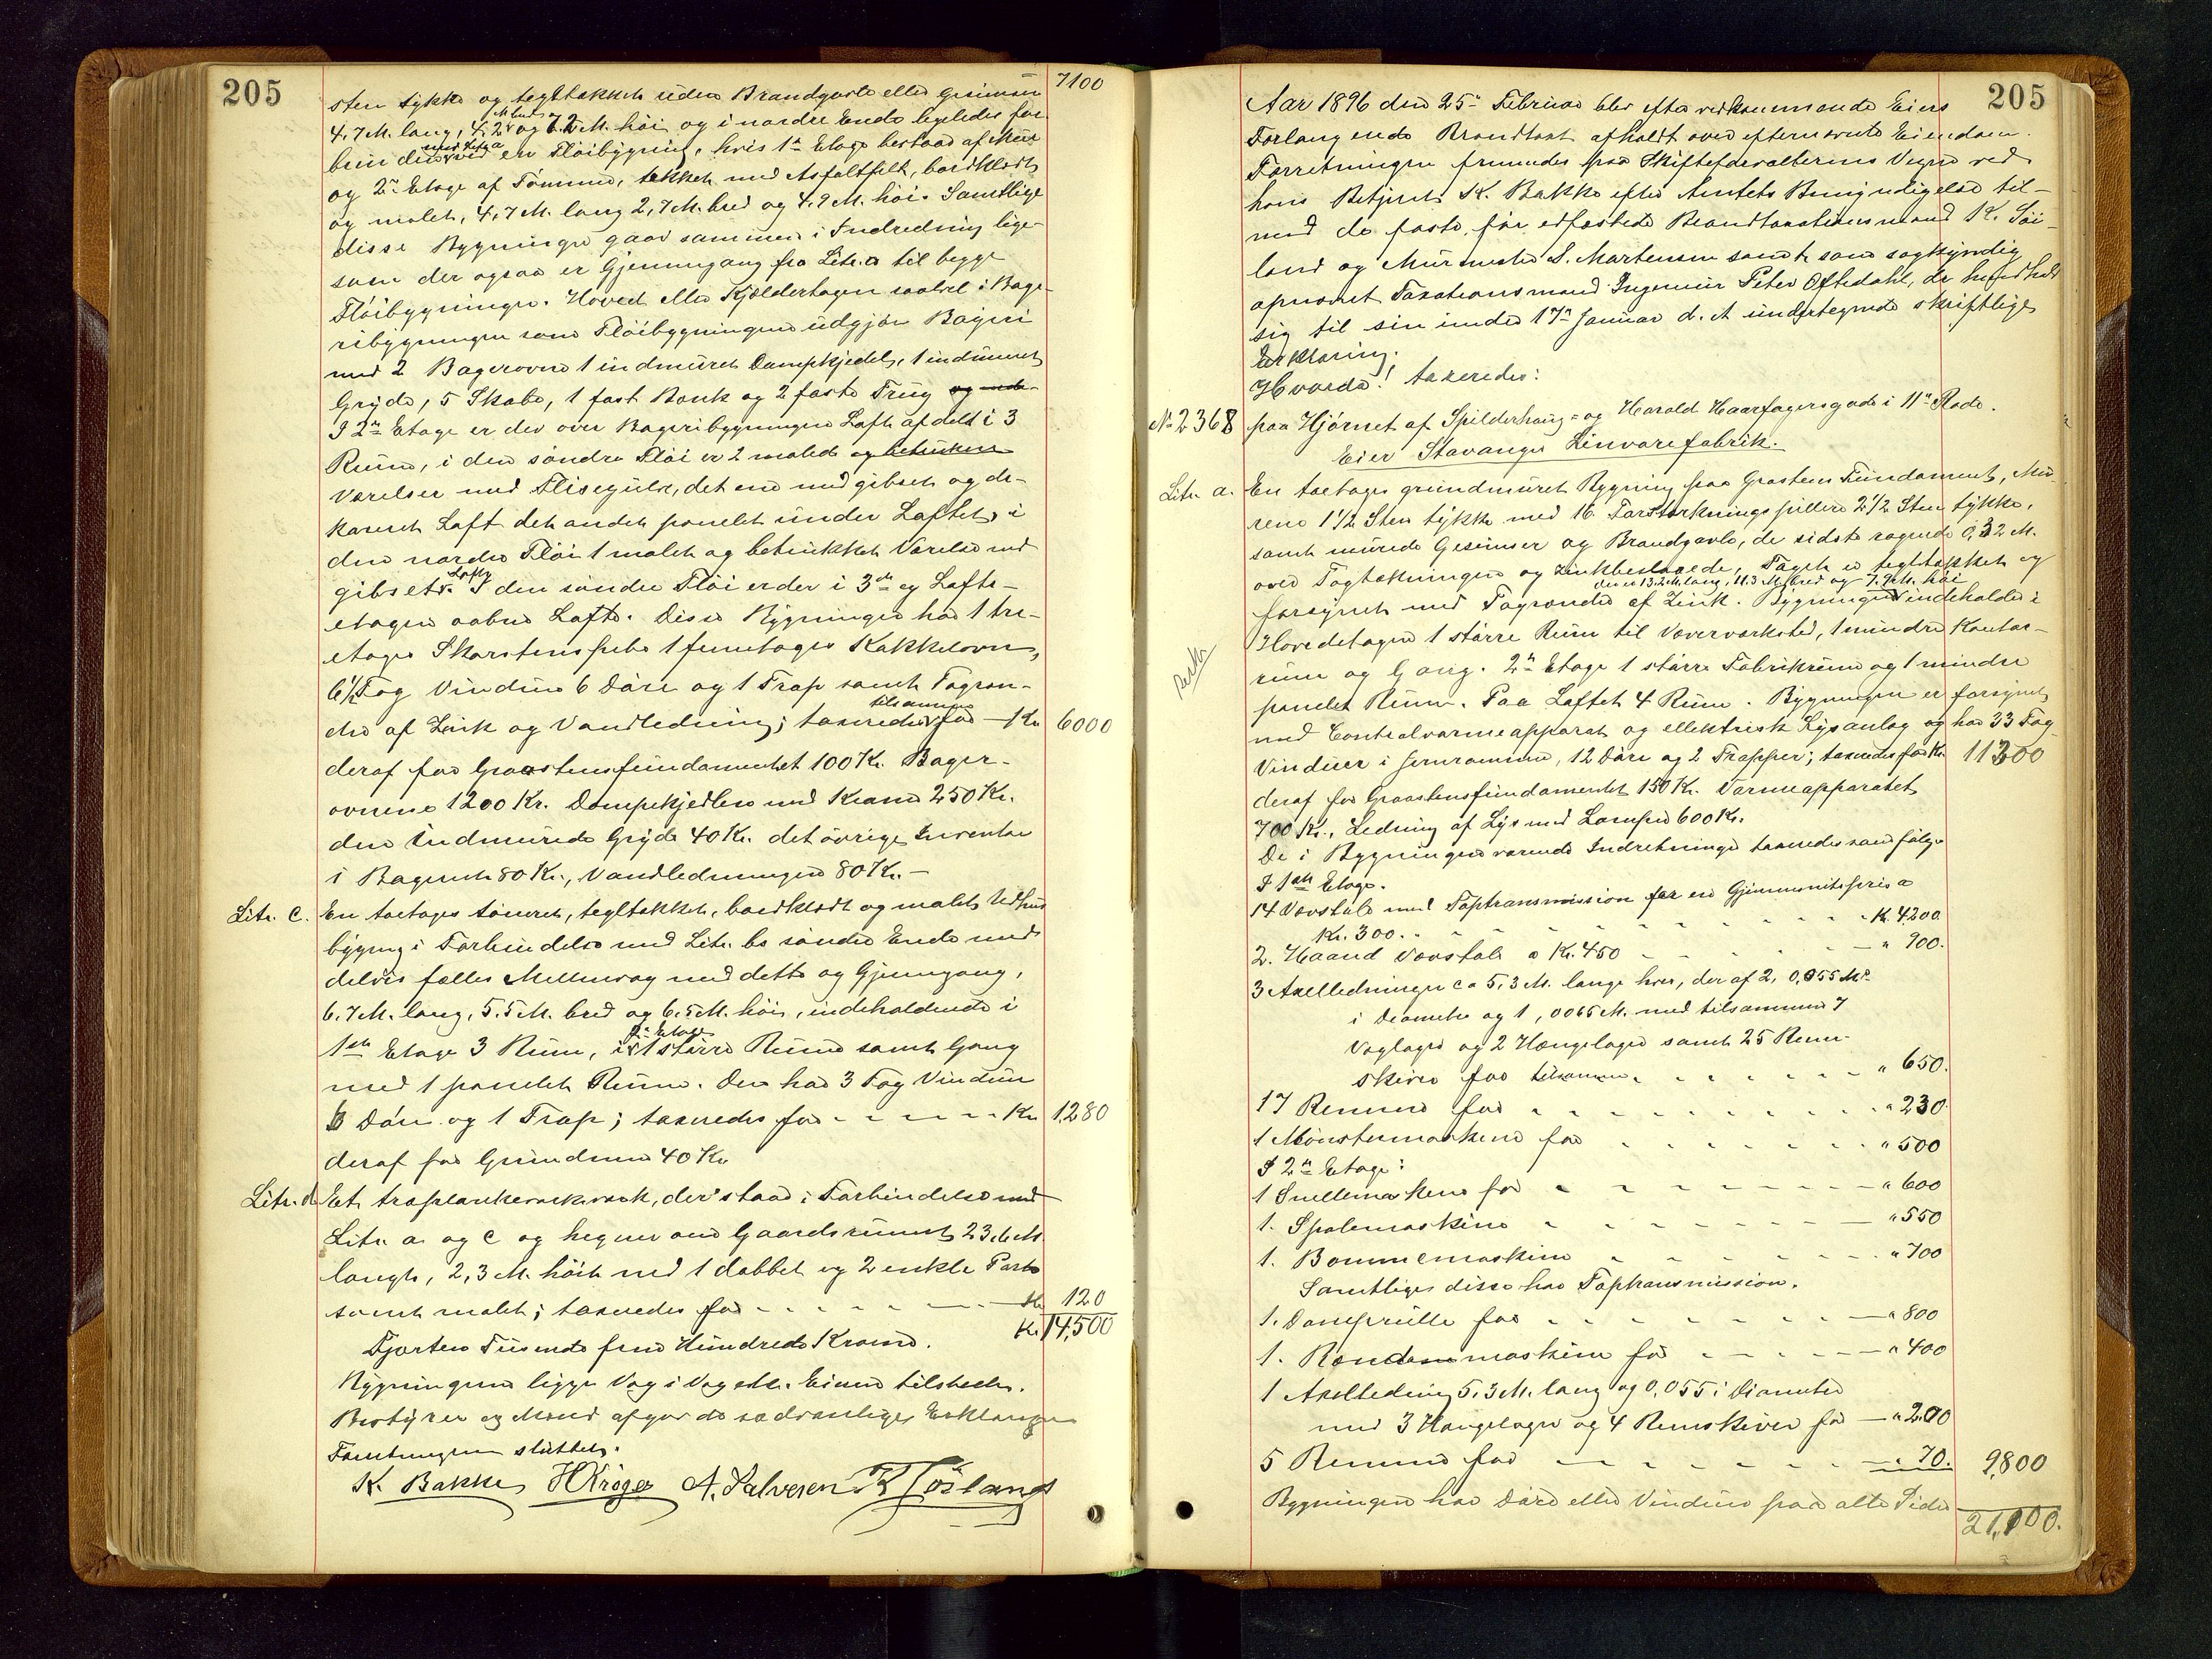 205
7100
sten tykke og tegltækket uden Brandgavle eller Gesimser
4,7 M. lang, 4.2 M bred og 7.2 M. høi og i nordre Ende ligeledes for
bunden med Litr a ved en Fløibygning, hvis 1ste Etage bestaar af Mur
og 2den Etage af Tømmer, tækket med Asfaltfilt, bordklædt
og malet, 4,7 M. lang 2,7 M. bred og 4.9 M. høi. Samtlige
disse Bygninger gaar sammen i Indredning lige-
som der ogsaa er Gjennemgang fra Litr. a til begge
Fløibygninger. Hoved eller Kjælderetagen saavel i Bage-
ribygningen som Fløibygningerne udgjør Bageri
med 2 Bagerovne 1 indmuret Dampkjedel, 1 indmuret
Gryde, 5 Skabe, 1 fast Bænk og 2 faste Trug og
I 2den Etage er der over Bageribygningen Loft afdelt i 3
Rum, i den søndre Fløi er 2 malede og betrukne
Værelser med Flisegulve, det ene med gibset og de-
koreret Loft det andet panelet under Loftet, i
den nordre Fløi 1 malet og betrukket Værelse med
gibset Loft. I den søndre Fløi er der i 3die og Lofts-
etagen aabne Lofte. Disse Bygninger har 1 tre-
etages Skorstenspibe 1 femetages Kakkelovn,
6½ Fag Vinduer 6 Døre og 1 Trap samt Tagren-
der af Zink og Vandledning; taxeredes tilsammen for — Kr 6000
deraf for Graastensfundamentet 100 Kr. Bager-
ovnene 1200 Kr. Dampkjedlen med Kraner 250 Kr.
den indmurede Gryde 40 Kr. det øvrige Inventar
i Bageriet 80 Kr., Vandledningen 80 Kr. —
Litr. C. En toetages tømret, tegltækket, bordklædt og malet Udhus
bygning i Forbindelse med Litr. bs søndre Ende med
delvis fælles Mellemvæg med dette og Gjennemgang,
6.7 M. lang, 5.5 M. bred og 6.5 M. høi, indeholdende i
1ste Etage 3 Rum, i 2den Etage 1 større Rum samt Gang
med 1 panelet Rum. Den har 3 Fag Vinduer
6 Døre og 1 Trap; taxeredes for - - - - - Kr 1,280
deraf for Grundmur 40 Kr
Litr. d Et træplankeværk, der staar i Forbindelse med
Litr. a og C og hegner om Gaardsrummet, 23,6 M.
langt, 2,3 M. høit med 1 dobbel og 2 enkle Porte
samt malet; taxeredes for - - - - - - Kr 120
Kr. 14,500
Fjorten Tusende fem Hundrede Kroner.
Bygningerne ligger Væg i Væg etc. Eieren tilstede.
Bestyrer og Mænd afgav de sædvanlige Erklæringer
Forretningen sluttet.
K. Bakke HKröger A. Salvesen K Töiland
205
Aar 1896 den 25de Februar blev efter vedkommende Eiers
Forlangende Brandtaxt afholdt over efternævnte Eiendom.
Forretningen fremmedes paa Skiftefdevalterens Vegne ved
hans Betjent K. Bakke efter Amtets Bemyndigelse til-
med de faste, før edfæstede Brandtaxationsmænd K. Töi-
land og Murmester S. Martensen samt som sagkyndig
opnævnt Taxationsmand Ingeniør Peter Oftedahl, der henholdt
sig til sin under 17de Januar d. A undertegnede skriftlige
Erklæring.
Hvorda! taxeredes:
No 2368 paa Hjørnet af Spilderhaug- og Harald Haarfagersgade i 11te Rode.
Eier Stavanger Linvarefabrik.
Litr. a. En toetages grundmuret Bygning paa Graastens Fundament, Mu
rene 1½ Sten tykke med 16 Forstærkningspillere 2½ Sten tykke,
samt murede Gesimser og Brandgavle, de sidste ragende 0,32 M.
over Tagtækningen og zinkbeslagede, Taget er tegltækket og
forsynet med Tagrender af Zink. Bygningen der er 13.2 M. lang, 11.3 M. bred og 7.9 M. høi indeholder i
Hovedetagen 1 større Rum til Væverværksted, 1 mindre Kontor-
rum og Gang. 2den Etage 1 større Fabrikrum og 1 mindre
panelet Rum. Paa Loftet 4 Rum. Bygningen er forsynet
med Centralvarmeapparat og ellektrisk Lysanlæg og har 33 Fag
Vinduer i Jernrammer, 12 Døre og 2 Trapper; taxeredes for Kr. 11300
deraf for Graastensfundamentet 150 Kr. Varmeapparatet
700 Kr., Ledning af Lys med Lamper 600 Kr.
De i Bygningen værende Indretninger taxeredes som følger
I 1ste Etage.
14 Vævstole med Toptransmission for en Gjennemsnitspris a
Kr. 300. - - - - - - - - Kr. 4200
2. Haand Vævstole a Kr. 450 - - - - - „ 900.
3 Axelledninger ca 5,3 M. lange hver, deraf 2, 0,055 M.
i Diameter og 1, 0065 M. med tilsammen 7
Væglagre og 2 Hængelagre samt 25 Rem-
skiver for tilsammen - - - - - - - „ 650.
17 Remmer for - - - - - - - - „ 230.
1 Mønstermaskine for - - - - - - - „ 500
I 2den Etage:
1 Snellemaskine for - - - - - - - „ 600
1. Spolemaskine - - - - - - - „ 550
1. Bommemaskine - - - - - - - „ 700
Samtlige disse har Toptransmission.
1. Damprulle for - - - - - - - „ 800
1. Rendemaskine for - - - - - „ 400
1 Axelledning 5.3 M. lang og 0,055 i Diameter
med 3 Hængelagre og 4 Remskiver for — „ 200
5 Remmer for - - - - - - - „ 70. 9,800
Bygningen har Døre eller Vinduer paa alle Sider
21,100.